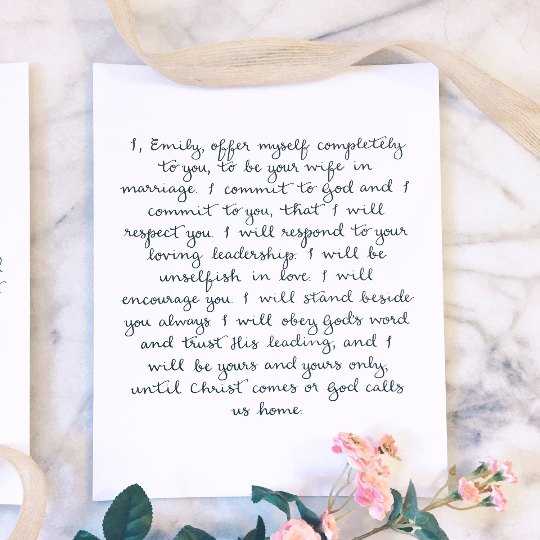 I, Emily, offer myself completely
to you, to be your wife in
marriage. I commit to God and I
commit to you, that I will
respect you. I will respond to your
loving leadership. I will be
unselfish in love. I will
encourage you. I will stand beside
you always. I will obey God's word
and trust His leading, and I
will be yours and yours only,
until Christ comes or God calls
us home.